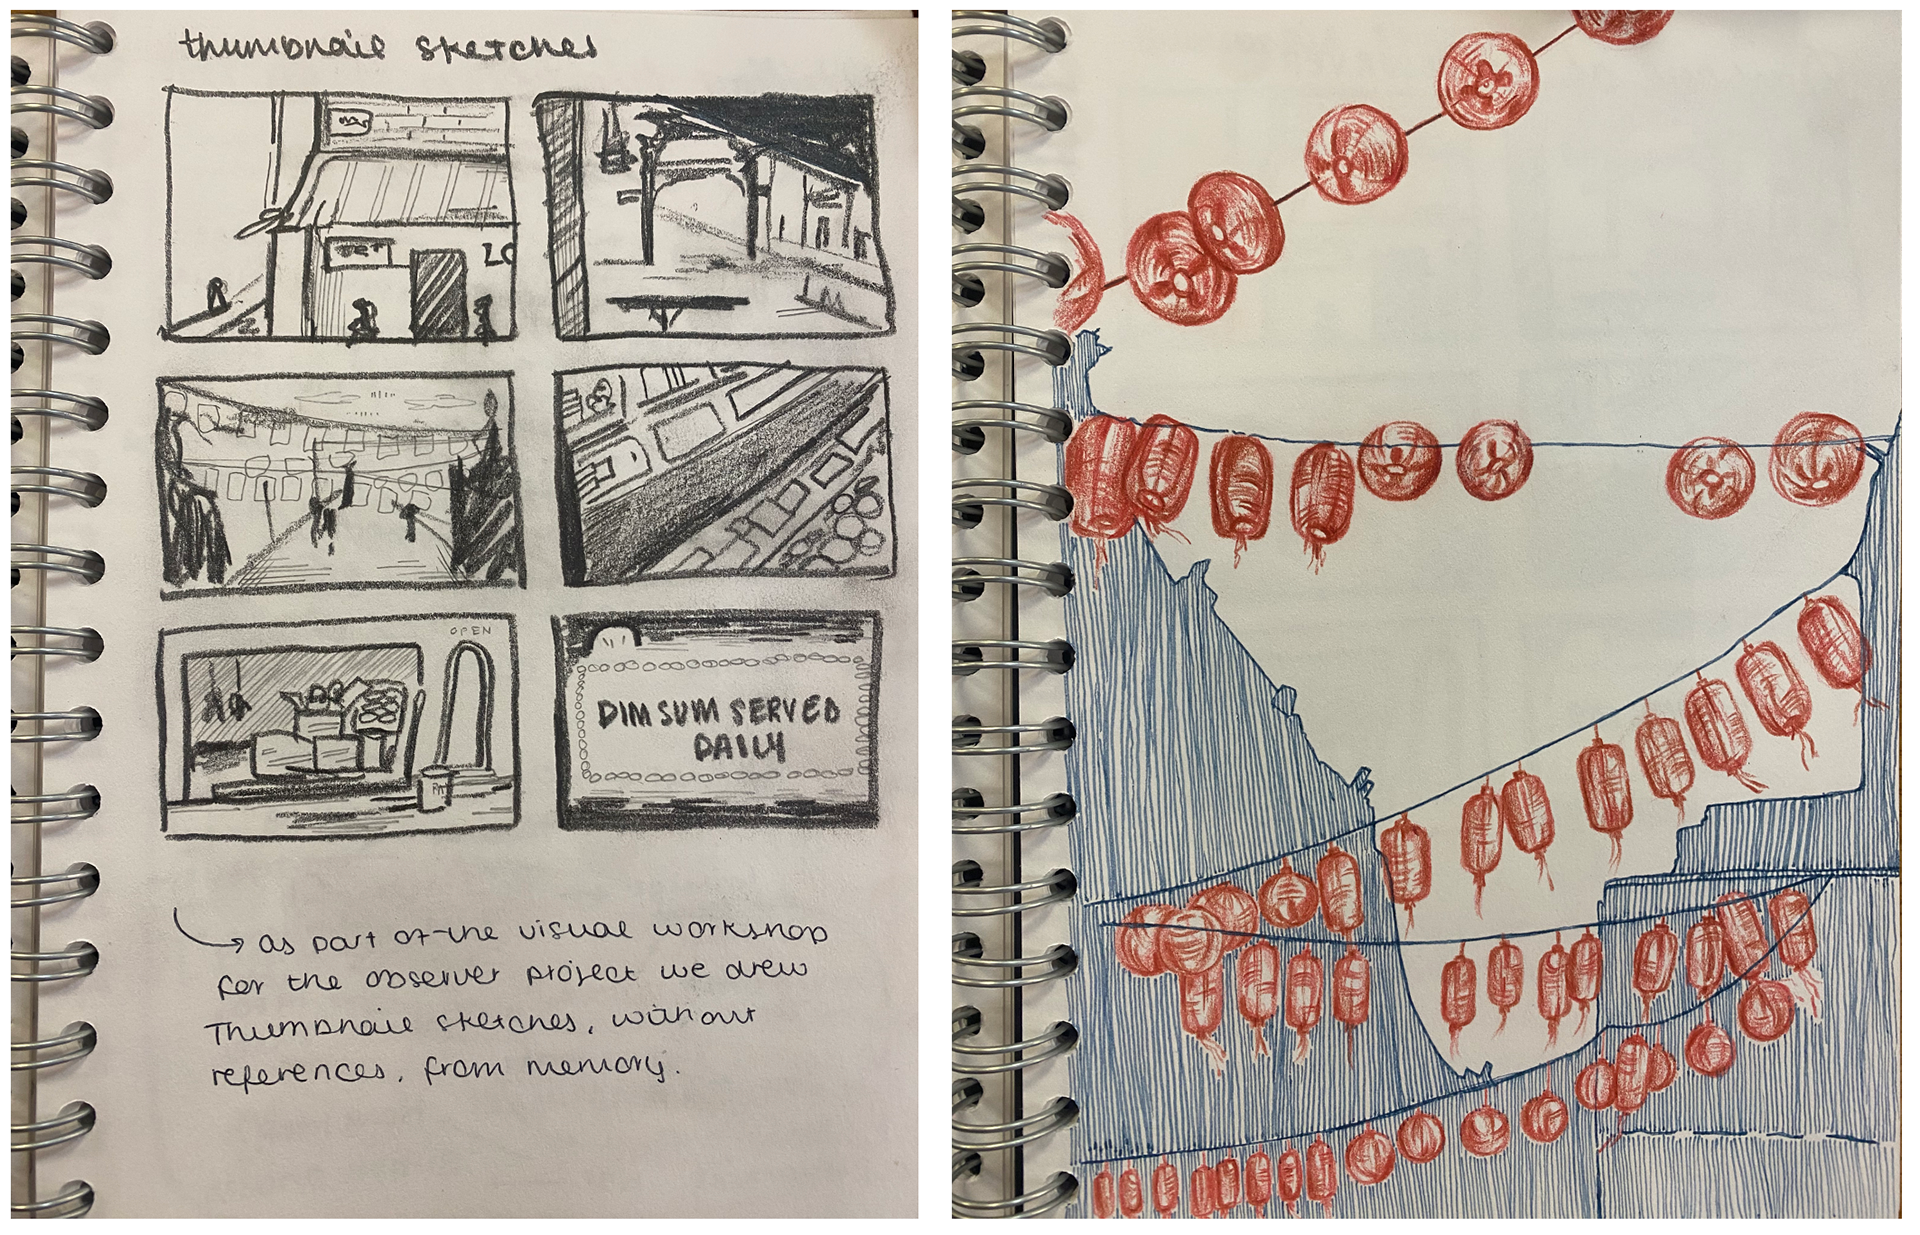 thumbnail sketches
20
OPEN
DIM SUM SERVED
DAILY
as part of the visual workshop
for the observer project we drew
Thumbnail sketches, without
references, from memory.